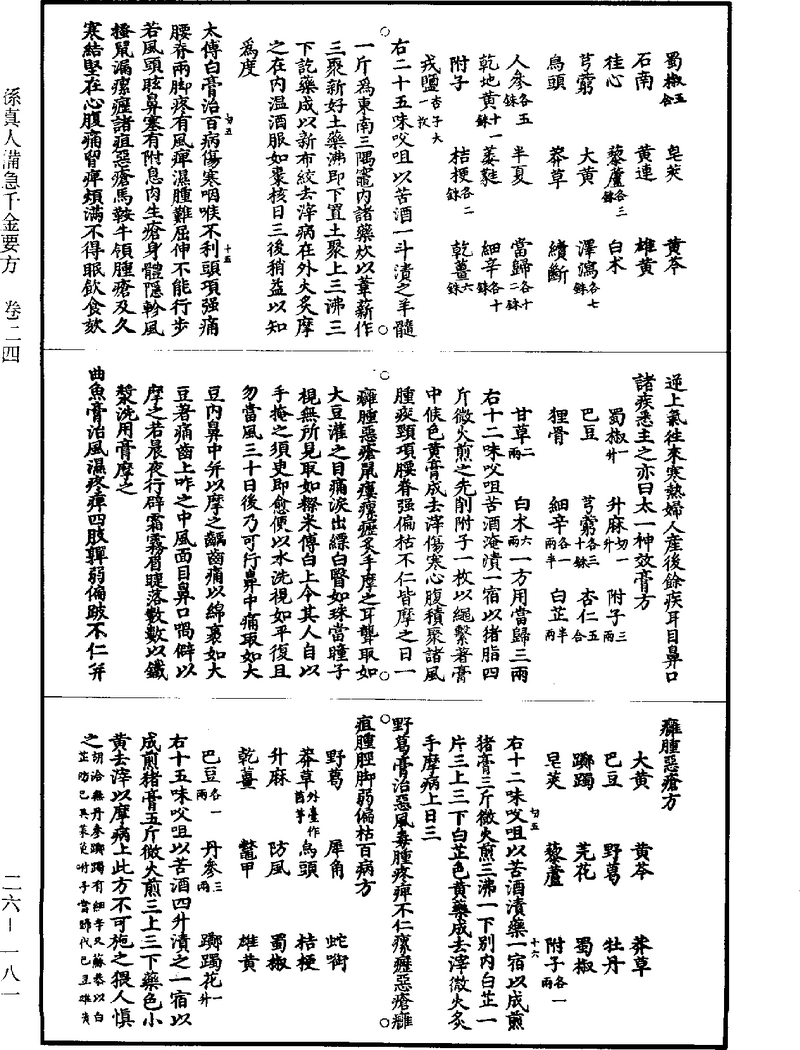 孫真人備急千金要方　卷二四
二六—一八一
蜀椒五合　皂莢　黃芩
石南　黃連　雄黃
桂心　藜蘆各三銖　白朮
芎藭　大黃　澤瀉各七銖
烏頭　莽草　續斷
人參各五銖　半夏　當歸各十二銖
乾地黃十一銖　萎蕤　細辛各十銖
附子　桔梗各二銖　乾薑六銖
戎鹽杏子大一枚
右二十五味㕮咀以苦酒一斗漬之羊髓
一斤爲東南三隅竈內諸藥炊以葦薪作
三聚新好土藥沸即下置土聚上三沸三
下訖藥成以新布絞去滓病在外火炙摩
之在內温酒服如棗核日三後稍益以知
爲度
太傅白膏治百病傷寒咽喉不利頭項强痛
腰脊兩脚疼有風痺濕腫難屈伸不能行步
若風頭眩鼻塞有附息肉生瘡身體隱軫風
搔鼠漏瘰癧諸疽惡瘡馬鞍牛領腫瘡及久
寒結堅在心腹痛胷痺煩滿不得眠飲食欬
逆上氣往來寒熱婦人産後餘疾耳目鼻口
諸疾悉主之亦曰太一神效膏方
蜀椒一升　升麻切一升　附子三兩
巴豆　芎藭各三十銖　杏仁五合
狸骨　細辛各一兩半　白芷半兩
甘草二兩　白朮六兩一方用當歸三兩
右十二味㕮咀苦酒淹漬一宿以猪脂四
斤微火煎之先削附子一枚以繩繫著膏
中候色黃膏成去滓傷寒心腹積聚諸風
腫疾頸項腰脊强偏枯不仁皆摩之日一
癰腫惡瘡鼠瘻瘰癧炙手摩之耳聾取如
大豆灌之目痛淚出縹白瞖如珠當瞳子
視無所見取如穄米傅白上令其人自以
手掩之須臾即愈便以水洗視如平復且
勿當風三十日後乃可行鼻中痛取如大
豆內鼻中并以摩之齲齒痛以綿裹如大
豆著痛齒上咋之中風面目鼻口喎僻以
摩之若晨夜行辟霜霧眉睫落數數以鐵
漿洗用膏摩之
曲魚膏治風濕疼痺四肢軃弱偏跛不仁并
癰腫惡瘡方
大黃　黃芩　莽草
巴豆　野葛　牡丹
躑躅　芫花　蜀椒
皂莢　藜蘆　附子各一兩
右十二味㕮咀以苦酒漬藥一宿以成煎
猪膏三斤微火煎三沸一下別內白芷一
片三上三下白芷色黃藥成去滓微火炙
手摩病上日三
野葛膏治惡風毒腫疼痺不仁瘰癧惡瘡癰
疽腫脛脚弱偏枯百病方
野葛　犀角　蛇銜
莽草外臺作茵芋　烏頭　桔梗
升麻　防風　蜀椒
乾薑　鼈甲　雄黃
巴豆各一兩　丹參三兩　躑躅花一升
右十五味㕮咀以苦酒四升漬之一宿以
成煎猪膏五斤微火煎三上三下藥色小
黃去滓以摩病上此方不可施之猥人慎
之胡洽無丹參躑躅有細辛又蘇恭以白
芷防巳吳茱萸附子當歸代巴豆雄黃